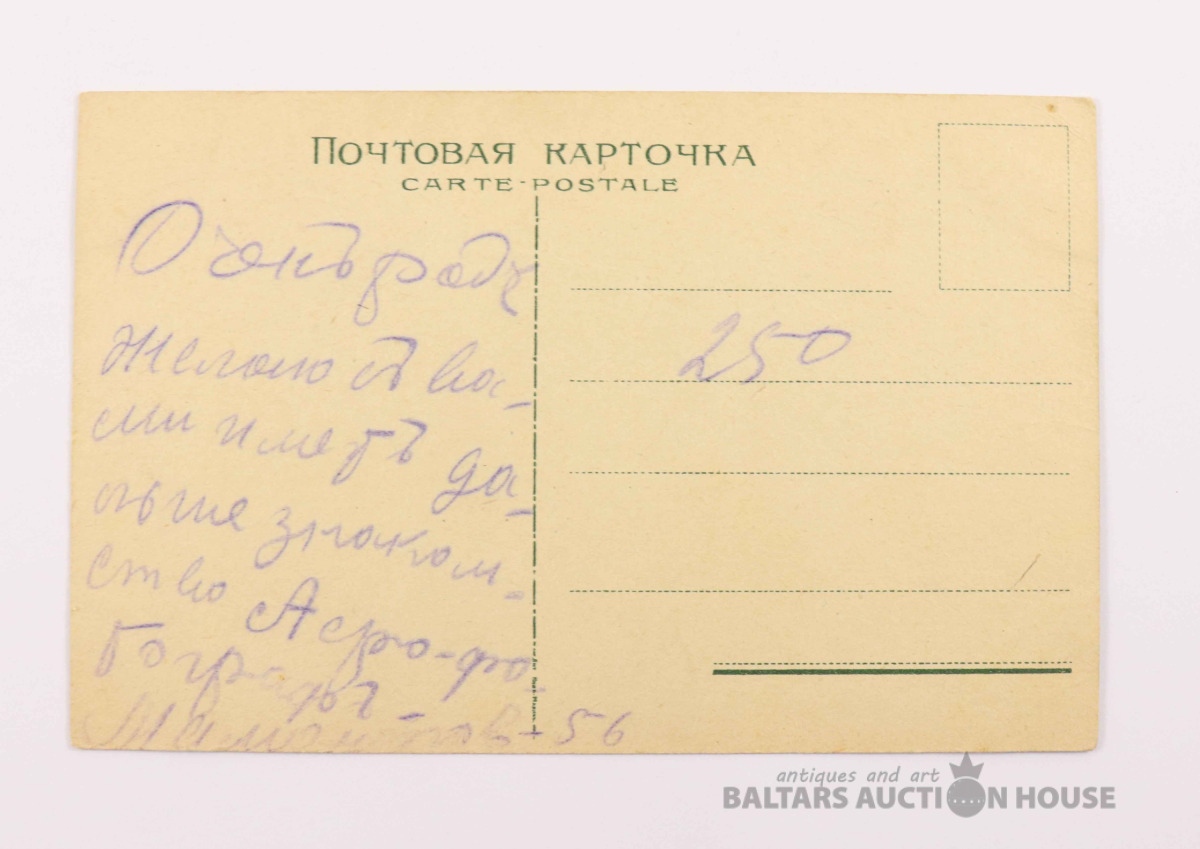 ПОЧТОВАЯ КАРТОЧКА
CARTE-POSTALE
Очень рады
желаю съ ва-
ми иметь да-
льше знаком-
ство Аеро-фо-
тографъ
250
56
antiques and art
BALTARS AUCTION HOUSE